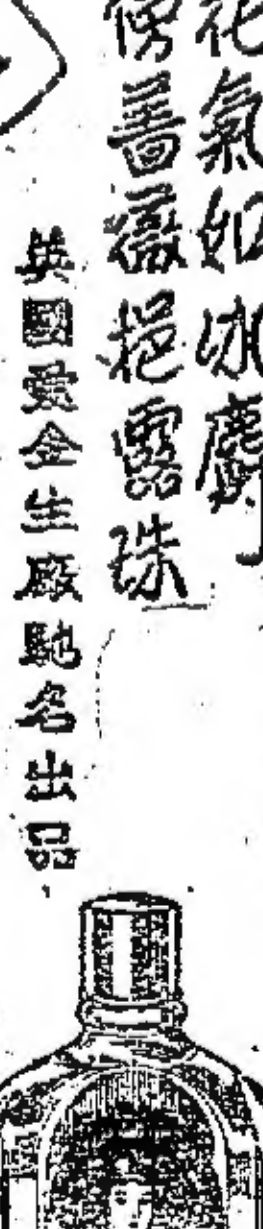 花氣如冰麝
傍薔薇挹露珠
英國愛金生廠馳名出品